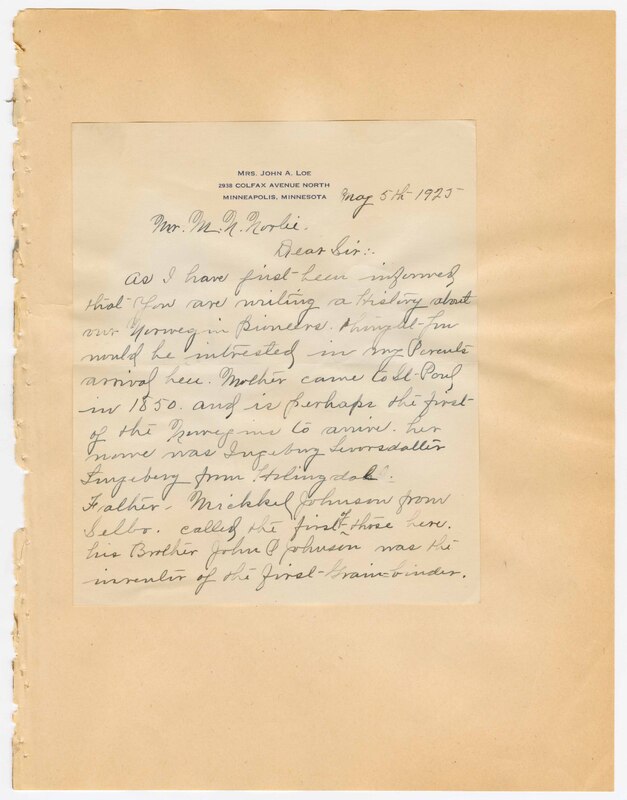 MRS. JOHN A. LOE
2938 COLFAX AVENUE NORTH
MINNEAPOLIS, MINNESOTA
May 5th 1925
Mr. M. N. Norlie.
Dear Sir:.
As I have first been informed
that you are writing a history about
our Norwegin pioneers. thinght you
would be intrested in my Parents
arrival here. Mother came to St Paul
in 1850. and is perhaps the first
of the Norwegins to arrive. her
name was Ingeburg
Ingeberg from
Father. Mickkel Johnson from
Selbo. called the first of those here.
his Brother John P Johnson was the
inventer of the first Grain-binder.